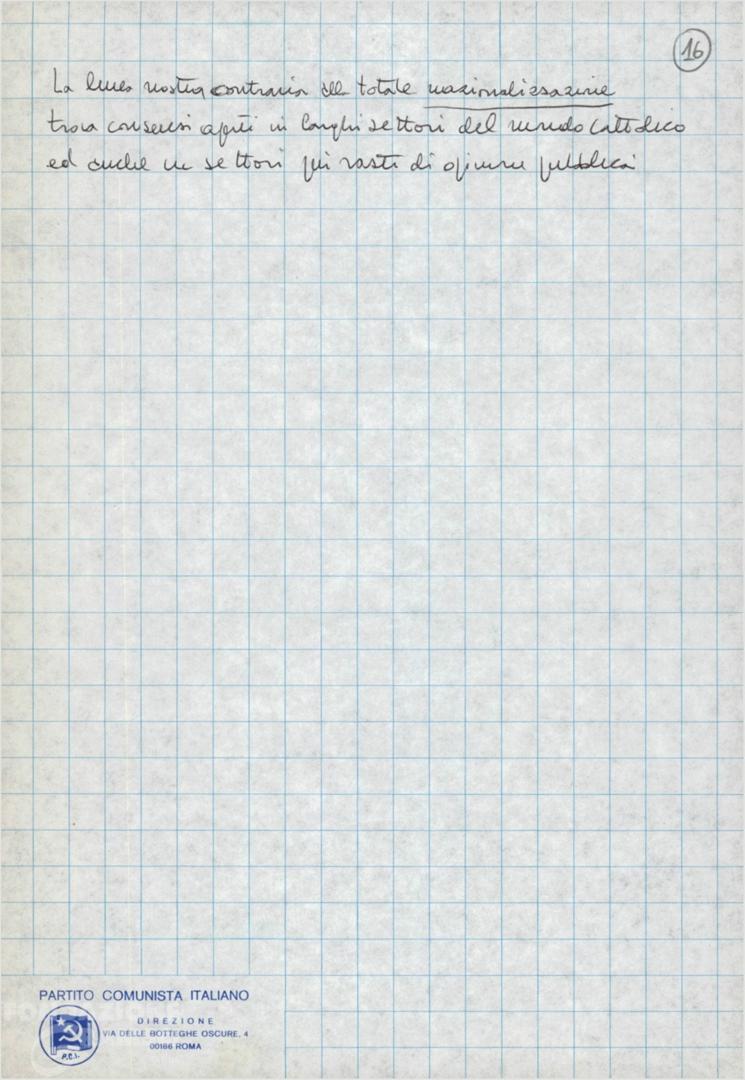 16
La linea nostra contraria alla totale nazionalizzazione
trova consensi aperti in larghi settori del mondo cattolico
ed anche in settori più vasti di opinione pubblica
PARTITO COMUNISTA ITALIANO
DIREZIONE
VIA DELLE BOTTEGHE OSCURE, 4
00186 ROMA
P.C.I.